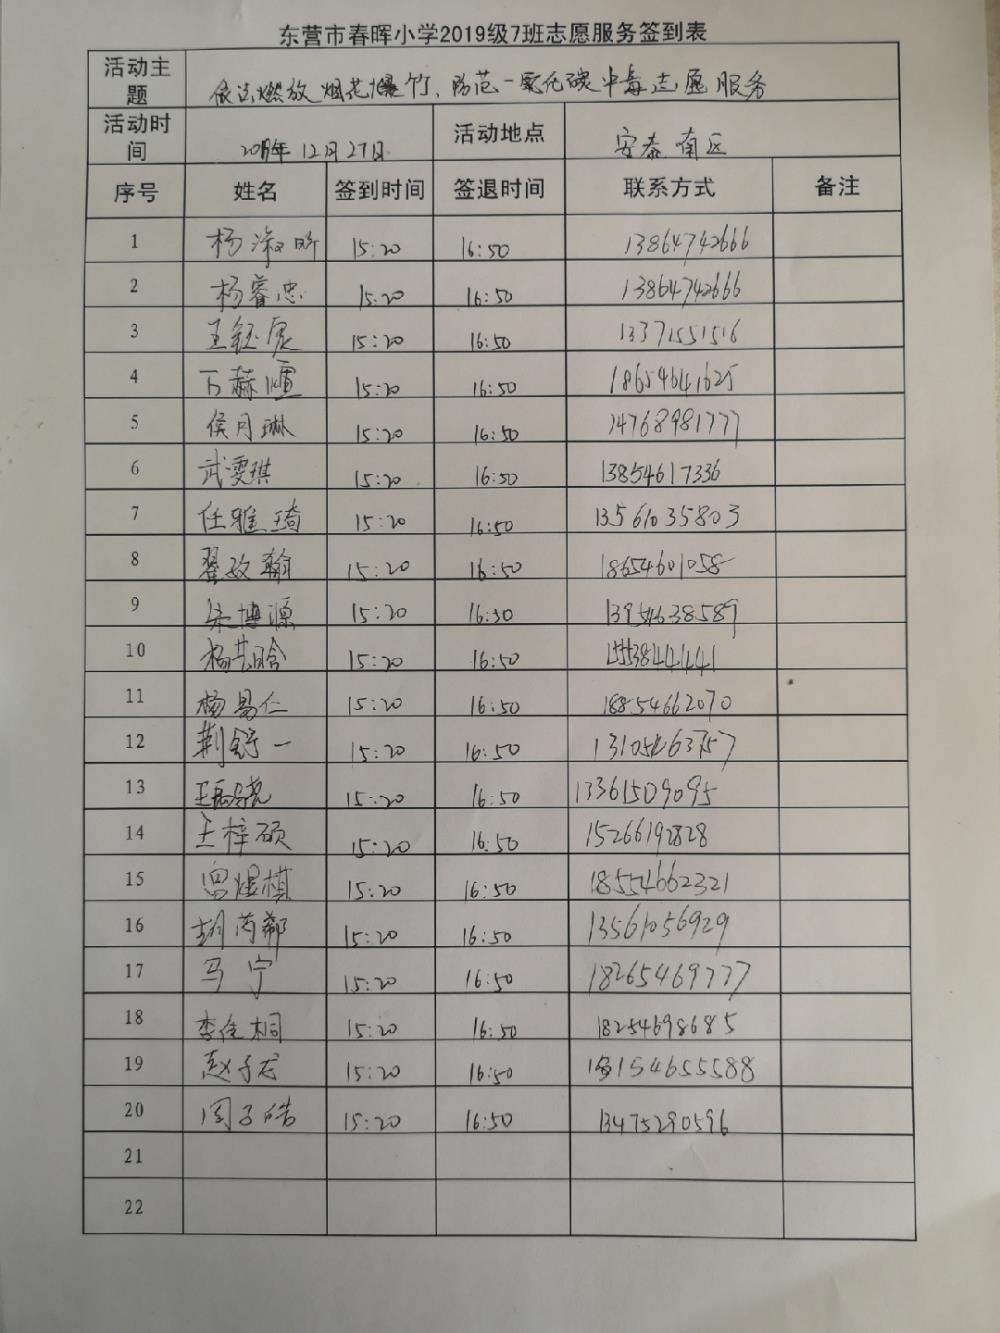 东营市春晖小学2019级7班志愿服务签到表
活动主题 依法燃放烟花爆竹、防范一氧化碳中毒志愿服务
活动时间 年12月27日 活动地点 安泰南区
序号 姓名 签到时间 签退时间 联系方式 备注
1 杨淑昕 15:20 16:50 13864742666
2 杨睿忠 15:20 16:50 13864742666
3 王钰宸 15:20 16:50 13371551516
4 万赫 15:20 16:50 18654641625
5 侯月琳 15:20 16:50 14768981777
6 武雯琪 15:20 16:50 13854617336
7 任雅琦 15:20 16:50 13561035803
8 翟政翰 15:20 16:50 18654601058
9 宋博源 15:20 16:50 13954638589
10 杨芸晗 15:20 16:50 15538441441
11 杨易仁 15:20 16:50 18854662070
12 荆舒一 15:20 16:50 13105463757
13 王 15:20 16:50 13361509095
14 王梓硕 15:20 16:50 15266192828
15 曾煜棋 15:20 16:50 18554662321
16 胡芮郗 15:20 16:50 13561056929
17 马宁 15:20 16:50 18265469777
18 李佳桐 15:20 16:50 18254698685
19 赵子龙 15:20 16:50 154655588
20 周子皓 15:20 16:50 13475290596
21
22